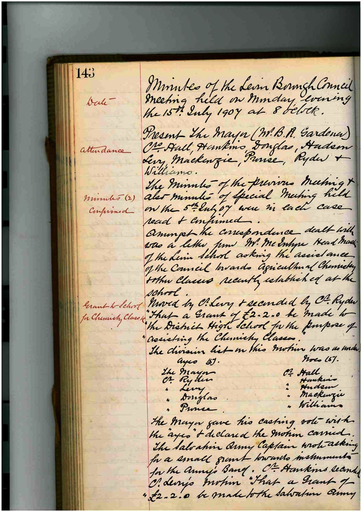 143
Minutes of the Levin Borough Council
Meeting held on Monday evening
Date
the 15th July 1907 at 8 o'clock.
Present The Mayor (Mr. B. R. Gardener)
Attendance
Crs. Hall, Hankins, Douglas, Hudson
Levy, Mackenzie, Prouse, Ryder &
Williams.
The Minutes of the previous Meeting &
Minutes (2)
also Minutes of special Meeting held
Confirmed
on the 5th July 07 were in each case
read & confirmed.
Amongst the correspondence dealt with
was a letter from Mr. McIntyre Head Master
of the Levin School asking the assistance
of the Council towards Agricultural Chemistry
& other classes recently established at the
school.
Grant to School
Moved by Cr. Levy & seconded by Cr. Ryder
for Chemistry Classes
"That a Grant of £2-2.0 be made to
the District High School for the purpose of
assisting the Chemistry Classes.
The division list on this motion was as under
Ayes (5). Noes (5).
The Mayor Cr. Hall
Cr. Ryder " Hankins
" Levy " Hudson
" Douglas " Mackenzie
" Prouse " Williams
The Mayor gave his casting vote with
the ayes & declared the motion carried
The Salvation Army Captain wrote asking
for a small grant towards instruments
for the Army's Band. Cr. Hankins seconded
Cr. Levy's motion "That a Grant of
"£2-2.0 be made to the Salvation Army